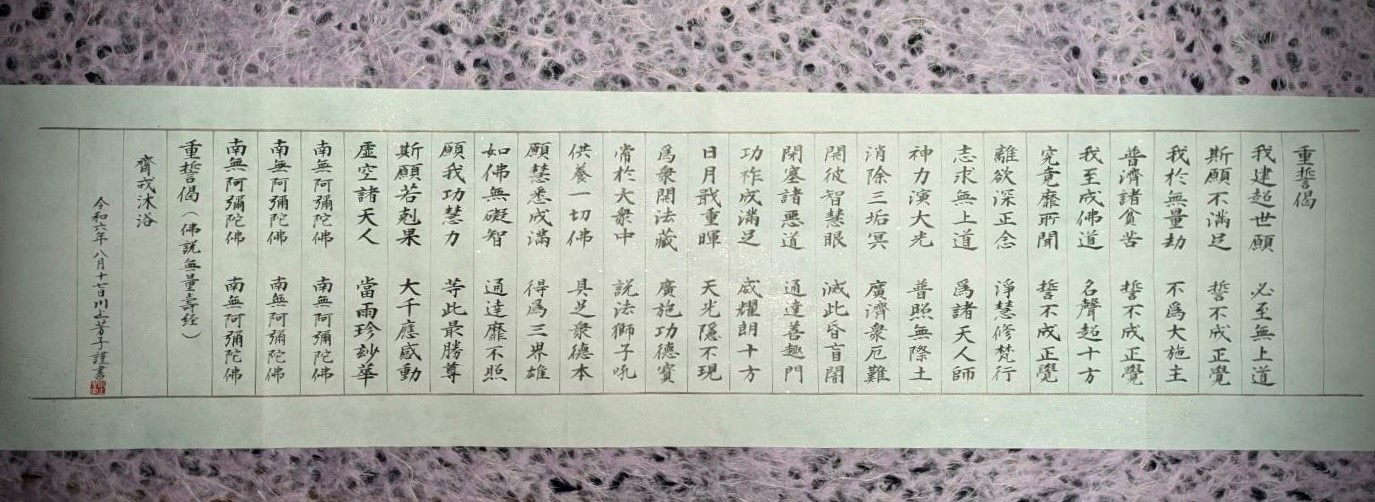 重誓偈
我建超世願　必至無上道
斯願不滿足　誓不成正覺
我於無量劫　不爲大施主
普濟諸貧苦　誓不成正覺
我至成佛道　名聲超十方
究竟靡所聞　誓不成正覺
離欲深正念　淨慧修梵行
志求無上道　爲諸天人師
神力演大光　普照無際土
消除三垢冥　廣濟衆厄難
開彼智慧眼　滅此昏盲闇
閉塞諸惡道　通達善趣門
功祚成滿足　威耀朗十方
日月戢重暉　天光隱不現
爲衆開法藏　廣施功德寶
常於大衆中　説法獅子吼
供養一切佛　具足衆德本
願慧悉成滿　得爲三界雄
如佛無礙智　通達靡不照
願我功慧力　等此最勝尊
斯願若剋果　大千應感動
虛空諸天人　當雨珍妙華
南無阿彌陀佛　南無阿彌陀佛
南無阿彌陀佛　南無阿彌陀佛
南無阿彌陀佛　南無阿彌陀佛
重誓偈（佛説無量壽經）
齋戒沐浴
令和六年八月十七日川上芳子謹書